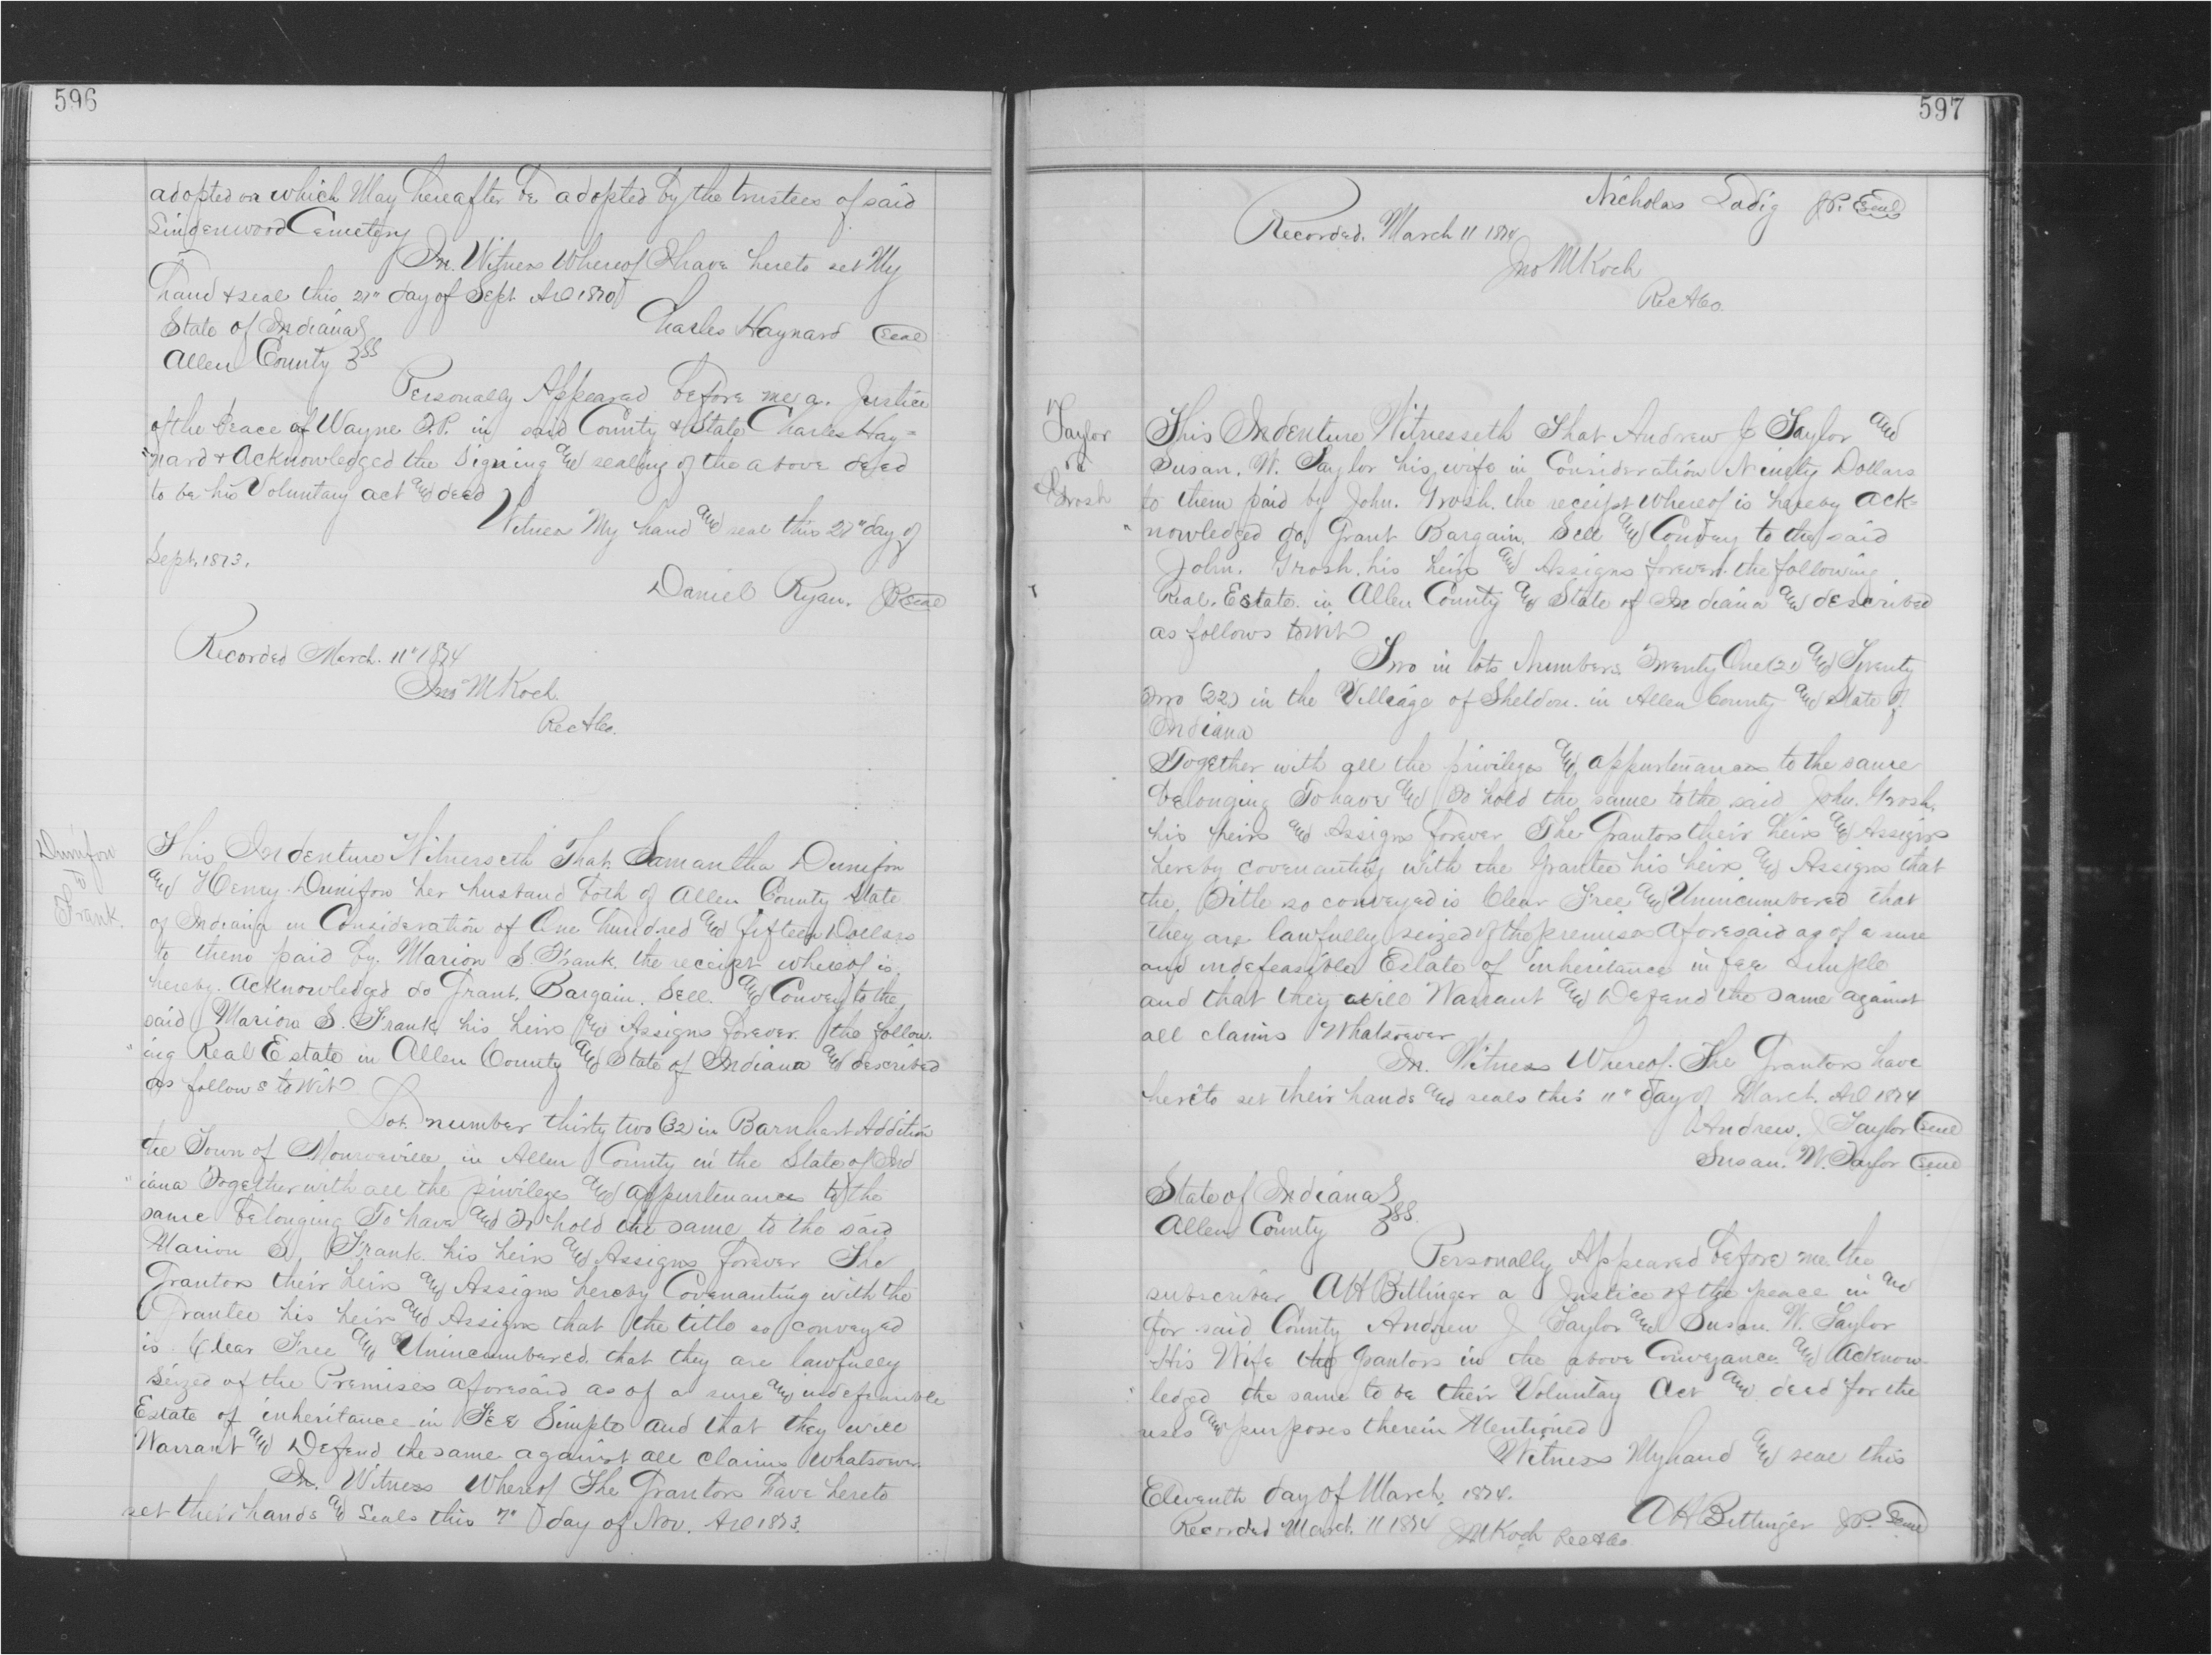 596
adopted or which May hereafter be adopted by the trustees of said
Lindenwood Cemetery
In Witness Whereof I have hereto set My
hand & seal this 27" day of Sept AD 1870
Charles Haynard Seal
State of Indiana
Allen County } SS
Personally Appeared before me a Justice
of the Peace of Wayne T.P. in said County & State Charles Hay=
"nard & Acknowledged the Signing and sealing of the above deed
to be his Voluntary act and deed
Witness My hand and seal this 27" day of
Sept. 1873.
Daniel Ryan. JP Seal
Recorded March. 11" 1874
Jno M Koch.
Rec A Co.
Dunifon
to
Frank.
This Indenture Witnesseth That Samantha Dunifon
and Henry Dunifon her husband both of Allen County State
of Indiana in Consideration of One hundred and fifteen Dollars
to them paid by Marion S. Frank the receipt whereof is
hereby Acknowledged do Grant, Bargain, Sell. and Convey to the
said Marion S. Frank his heirs and Assigns forever the follow.
"ing Real Estate in Allen County and State of Indiana and described
as follows to Wit
Lot number thirty two (32) in Barnhart Addition
the Town of Monroeville in Allen County in the State of Ind
"iana Together with all the privileges and appurtenances to the
same belonging To have and to hold the same to the said
Marion S. Frank his heirs and Assigns forever The
Grantors their heirs and Assigns hereby Covenanting with the
Grantee his heirs and Assigns that the title so conveyed
is Clear Free and Unincumbered that they are lawfully
Seized of the Premises aforesaid as of a sure and indefeasible
Estate of inheritance in Fee Simple and that they will
Warrant and Defend the same against all claims whatsoever
In Witness Whereof The Grantors have hereto
set their hands and Seals this 7" day of Nov. AD 1873.
597
Nicholas Ladig JP. Seal
Recorded. March 11 1874
Jno M Koch
Rec A Co.
Taylor
to
Grosh
This Indenture Witnesseth That Andrew J Taylor and
Susan. W. Taylor his wife in Consideration Ninety Dollars
to them paid by John. Grosh. the receipt whereof is hereby Ack=
"nowledged do Grant Bargain. Sell and Convey to the said
John. Grosh. his heirs and Assigns forever the following
Real. Estate. in Allen County and State of Indiana and described
as follows to Wit
Two in lots Numbers Twenty One (21) and Twenty
Two (22) in the Village of Sheldon. in Allen County and State of
Indiana
Together with all the privileges and appurtenances to the same
belonging To have and to hold the same to the said John. Grosh.
his heirs and Assigns forever The Grantors their heirs and Assigns
hereby covenanting with the Grantee his heirs and Assigns that
the Title so conveyed is Clear Free and Unincumbered that
they are lawfully seized of the premises aforesaid as of a sure
and indefeasible Estate of inheritance in fee simple
and that they will Warrant and Defend the same against
all claims Whatsoever
In Witness Whereof. The Grantors have
hereto set their hands and seals this 11" day of March. AD 1874
Andrew. J Taylor Seal
Susan. W. Taylor Seal
State of Indiana
Allen County } SS.
Personally Appeared before me the
subscriber A H Bittinger a Justice of the peace in and
for said County Andrew J Taylor and Susan. W. Taylor
His Wife the grantors in the above Conveyance and Acknow-
ledged the same to be their Voluntay Act and deed for the
uses and purposes therein Mentioned
Witness My hand and seal this
Eleventh day of March. 1874.
A H Bittinger JP. Seal
Recorded March. 11 1874 JM Koch Rec A Co